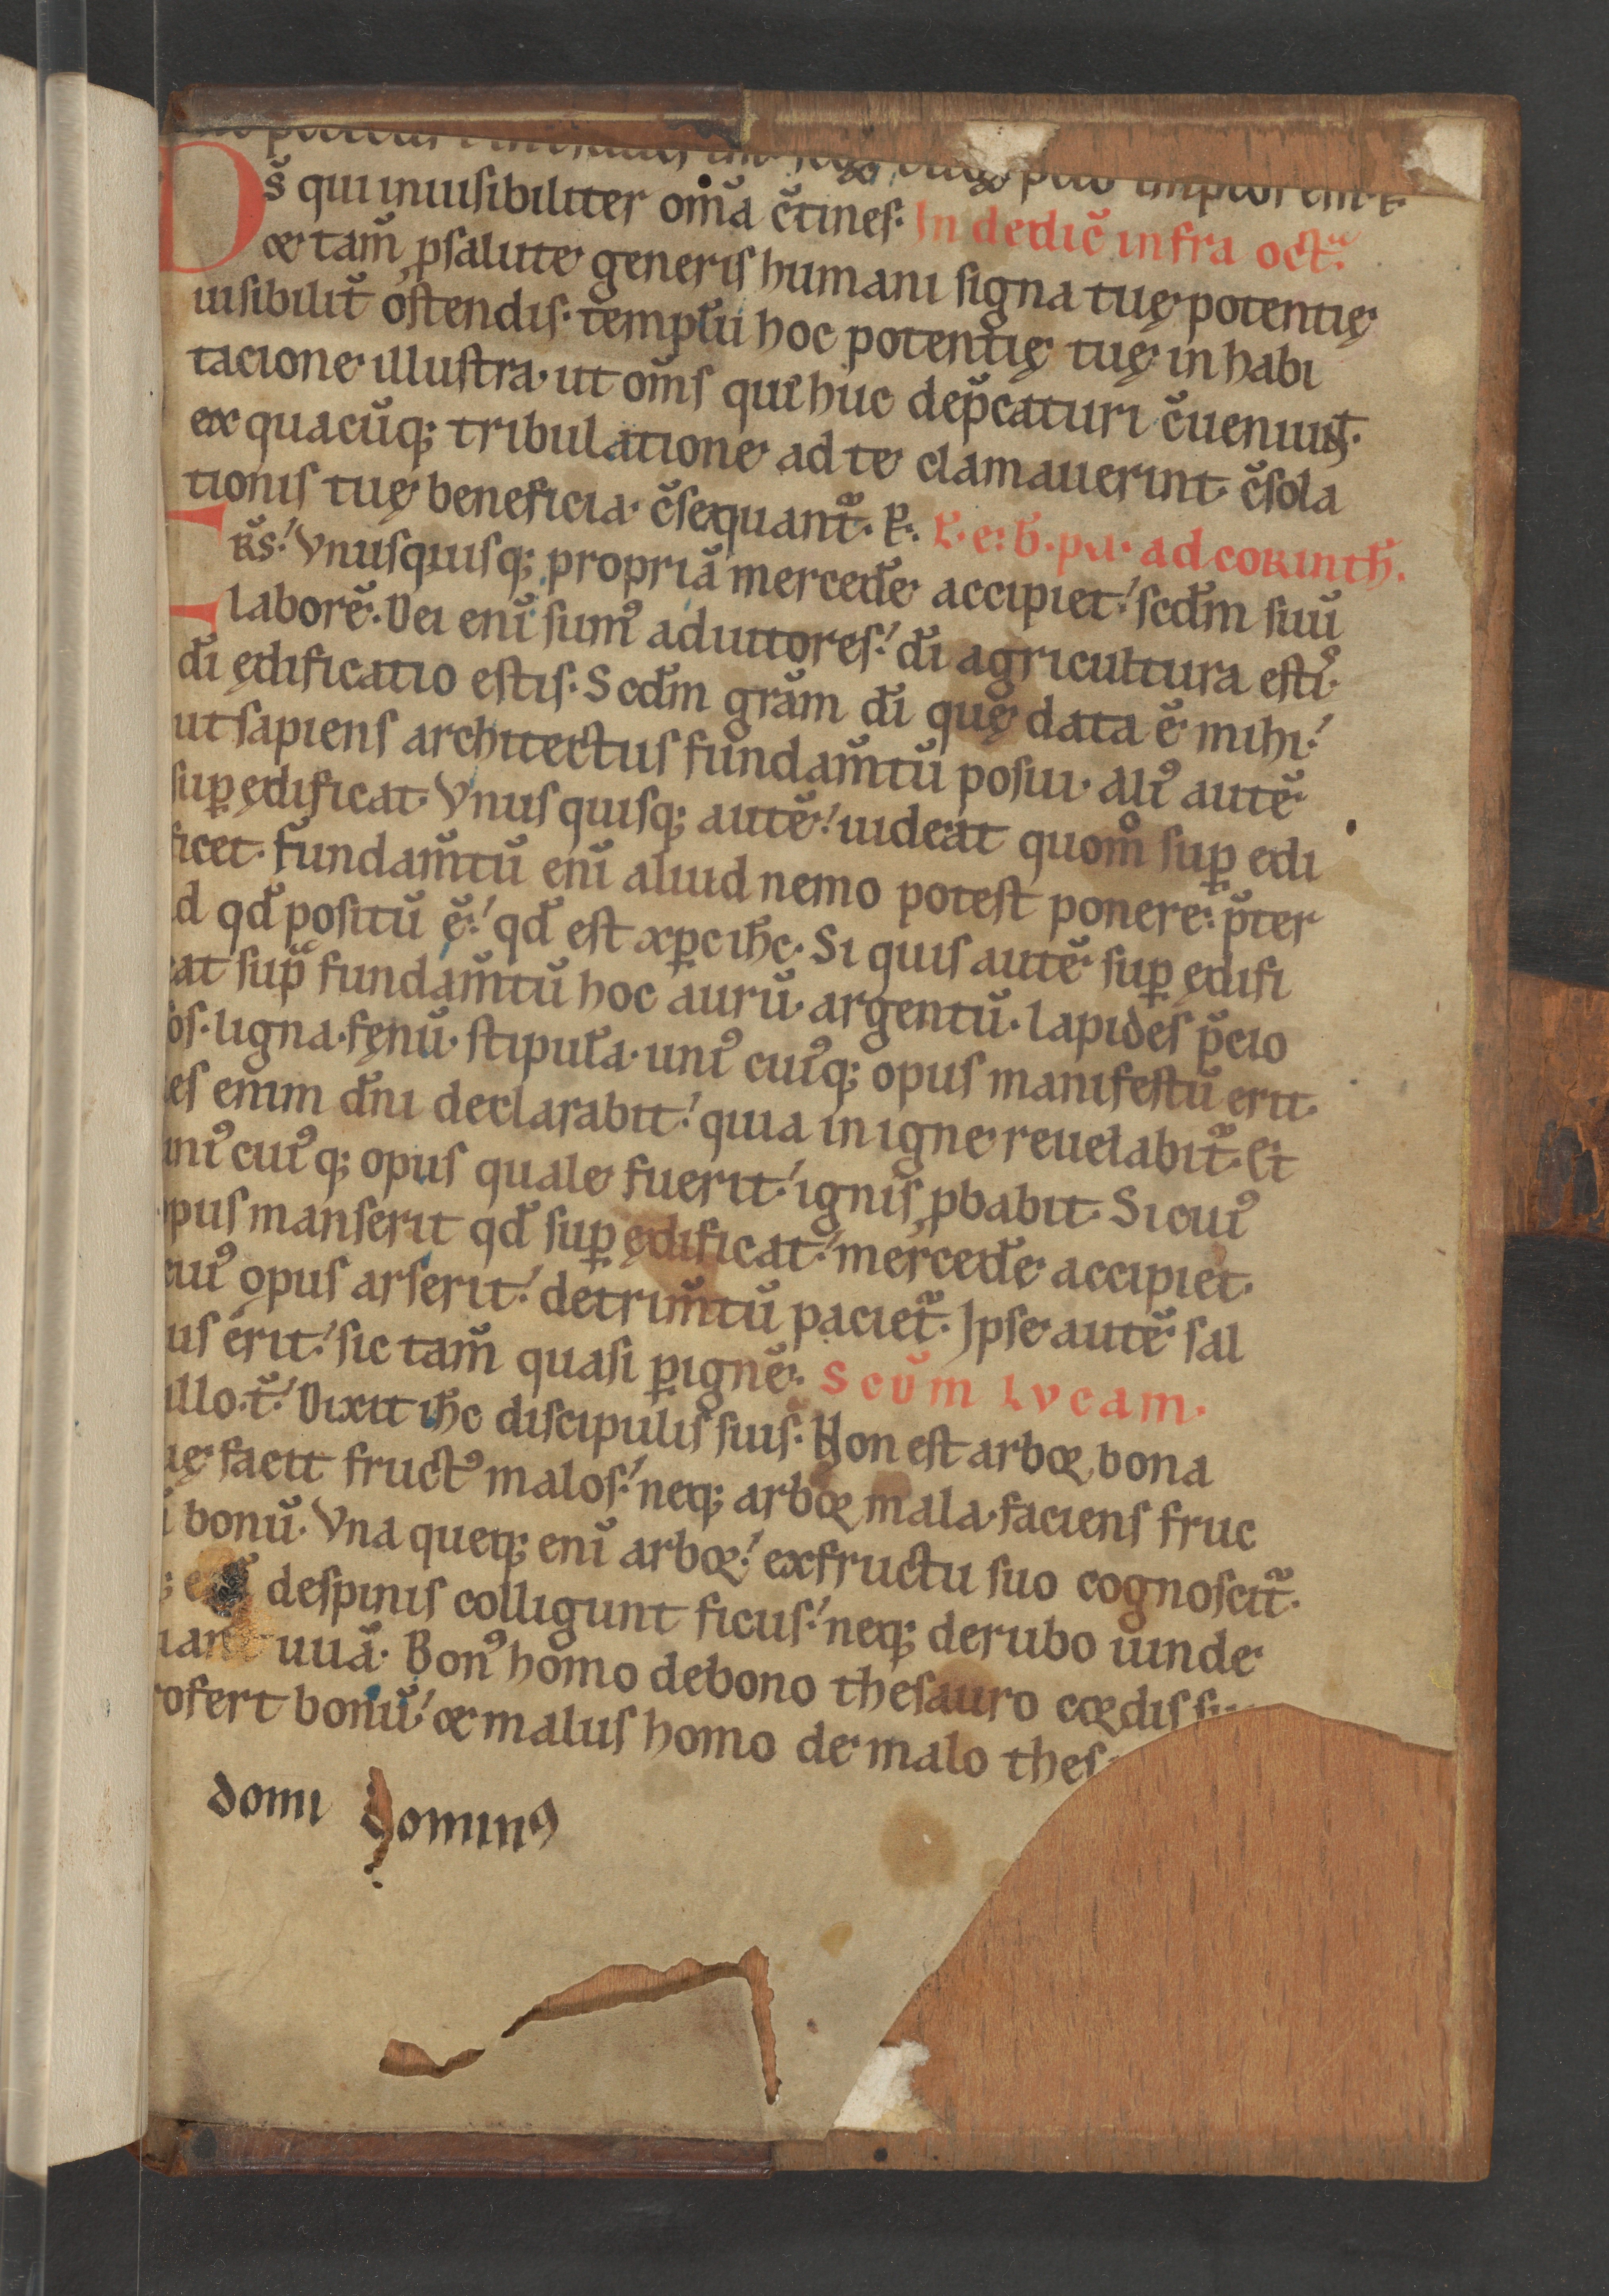 Ds̄ qui inuisibiliter om̄a c̄tines. In dedic̄ infra oct̄.
& tam̄ ꝓsalute generis humani signa tuę potentię
uisibilit̄ ostendis. templū hoc potentię tuę inhabi
tacione illustra. ut om̄s qui huc dep̄caturi c̄ueniunt.
ex quacūq; tribulatione ad te clamauerint. c̄sola
tionis tuę beneficia. c̄sequant᷑. P. L. e. b. pa. ad corinth.
Frs̄. Vnusquisq; propriā mercedē accipiet. scd̄m suū
laborē. Dei enī sum᷒ adiutores. dī agricultura estis.
dī ędificatio estis. Scd̄m grām dī quę data ē mihi.
ut sapiens architectus fundam̄tū posui. Ali᷒ autē
suꝑędificat. Vnusquisq; autē. uideat quom̊ suꝑ edi
ficet. Fundam̄tū enī aliud nemo potest ponere. p̄ter
id qd̄ positū ē. qd̄ est xp̄c ih̄c. Si quis autē suꝑ ędifi
cat sup̄ fundam̄tū hoc aurū. argentū. lapides p̄cio
sos. ligna. fęnū. stipula. uni᷒ cui᷒q; opus manifestū erit.
ies enim dn̄i declarabit. quia in igne reuelabit᷑. Et
uni᷒ cui᷒q; opus quale fuerit. ignis ꝓbabit. Si cui᷒
opus manserit qd̄ suꝑ ędificat. mercedē accipiet.
cui᷒ opus arserit. detrim̄tū paciet᷑. Ipse autē sal
us erit. sic tam̄ quasi ꝑignē. Scd̄m Lvcam.
illo. t̄. Dixit ih̄c discipulis suis. Non est arbor bona
uę facit fruct᷒ malos. neq; arbor mala. faciens fruc
bonū. Vna queq; enī arbor. ex fructu suo cognoscit᷑.
despinis colligunt ficus. neq; derubo uinde
uuā. Bon᷒ homo debono thesauro cordis su
rofert bonū. & malus homo de malo thes
domi dominꝰ